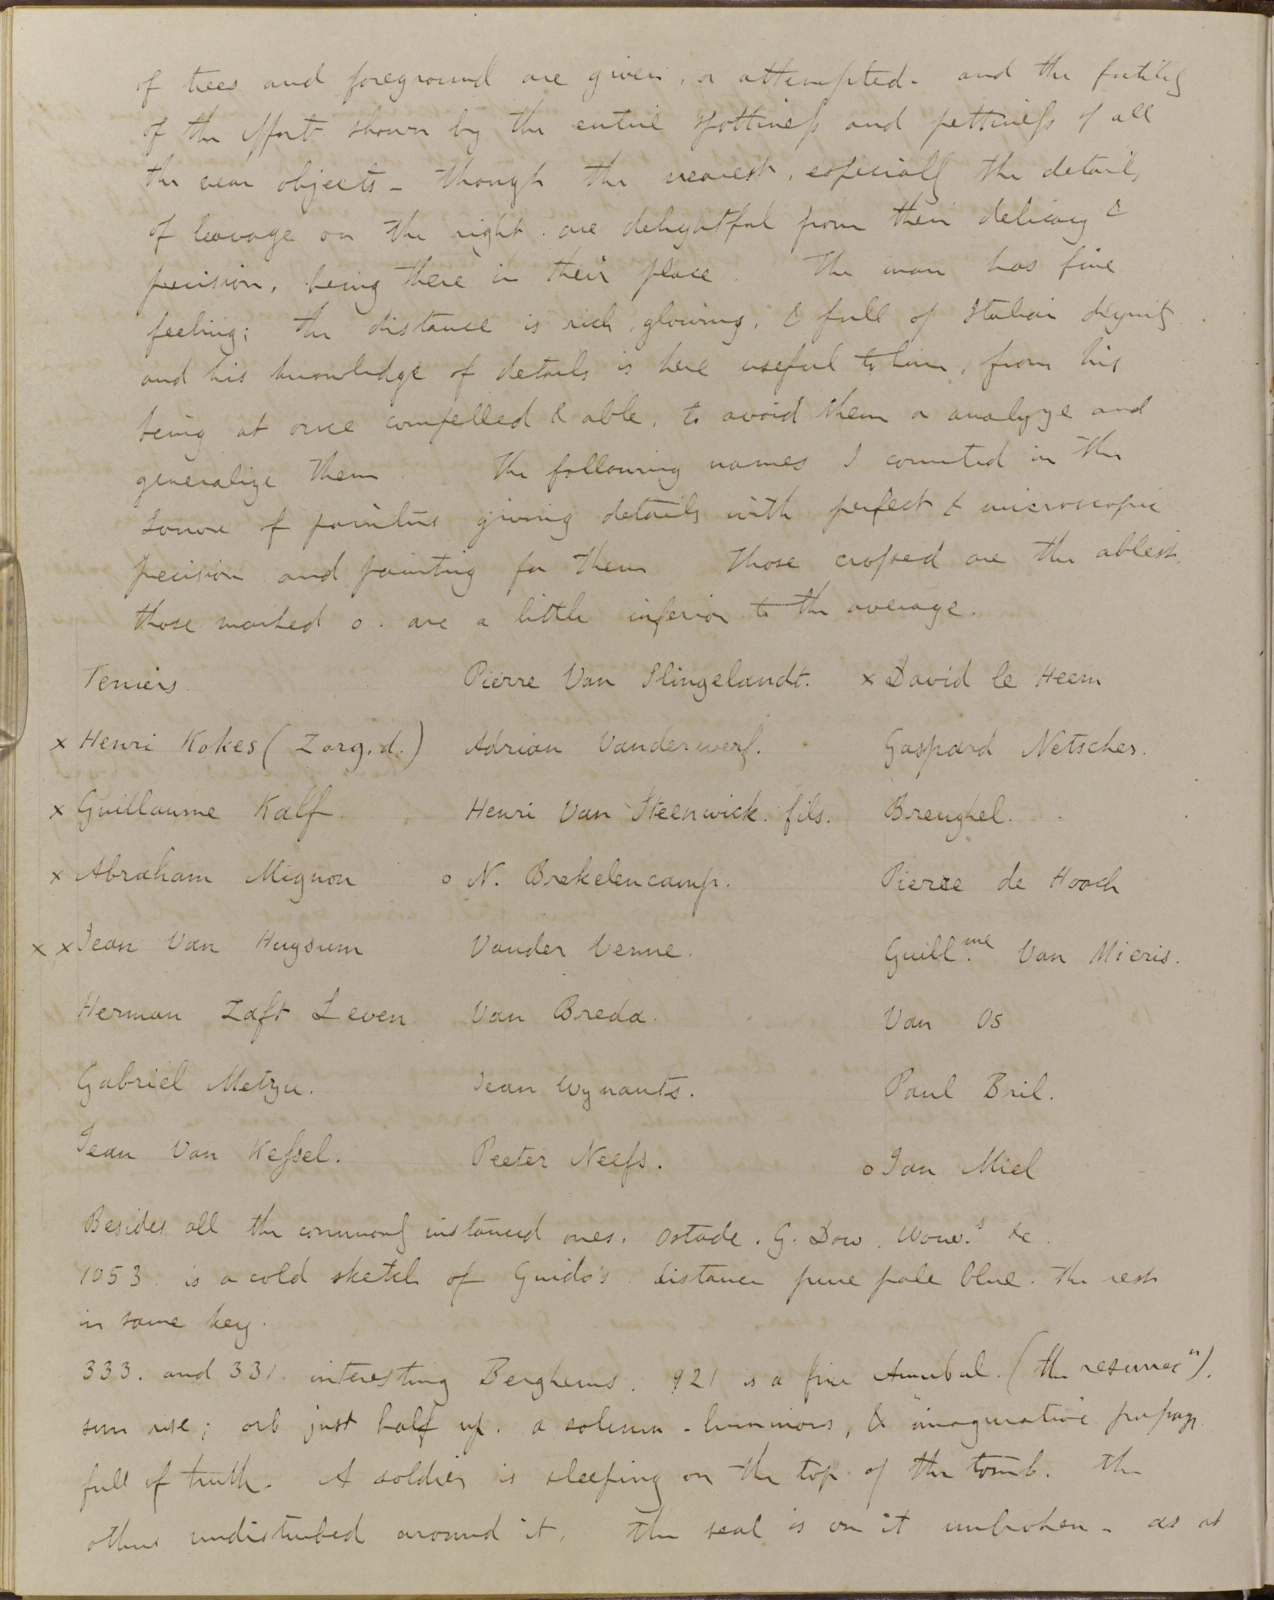 of trees and foreground are given, or attempted - and the futility
of the effort shown by the entire spottiness and pettiness of all
the near objects - though the nearest, especially the details
of leavage on the right. are delightful from their delicacy &
precision, being there in their place. The man has fine
feeling; the distance is rich, glowing, & full of Italian dignity
and his knowledge of details is here useful to him, from his
being at once compelled & able, to avoid them or analyze and
generalize them. The following names I counted in the
Louvre of painters giving details with perfect & microscopic
precision and painting for them Those crossed are the ablest.
those marked o. are a little inferior to the average.
Teniers. Pierre Van Slingelandt. x David le Heem
x Henri Kokes (Zorg. d.) Adrian Vanderwerf. Gaspard Netscher.
x Guillaume Kalf. Henri Van Steenwick. fils. Breughel.
x Abraham Mignon o N. Brekelencamp. Pierre de Hooch
x x Jean Van Huysum Vander Venne. Guill.me Van Mieris.
Herman Zaft Leven Van Breda. Van Os
Gabriel Metzu. Jean Wynants. Paul Bril.
Jean Van Kessel. Peeter Neefs. o Jan Miel
Besides all the commonly instanced ones. Ostade. G. Dow. Wouv.s &c.
1053. is a cold sketch of Guido's distance pure pale blue. the rest
in same key.
333. and 331. interesting Berghems. 921 is a fine Annibal. (the resurrecn).
sun rise; orb just half up. a solemn - luminous, & imaginative
full of truth. A soldier is sleeping on the top of the tomb. The
others undisturbed around it. The seal is on it unbroken - as at